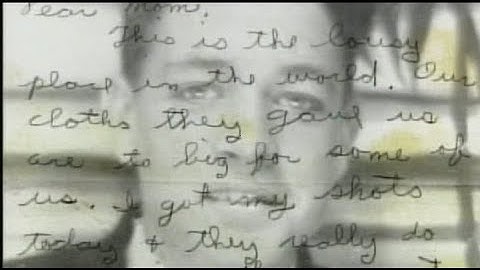 Dear Mom,
This is the lousy
place in the world. Our
cloths they gave us
are to big for some of
us. I got my shots
today & they really do